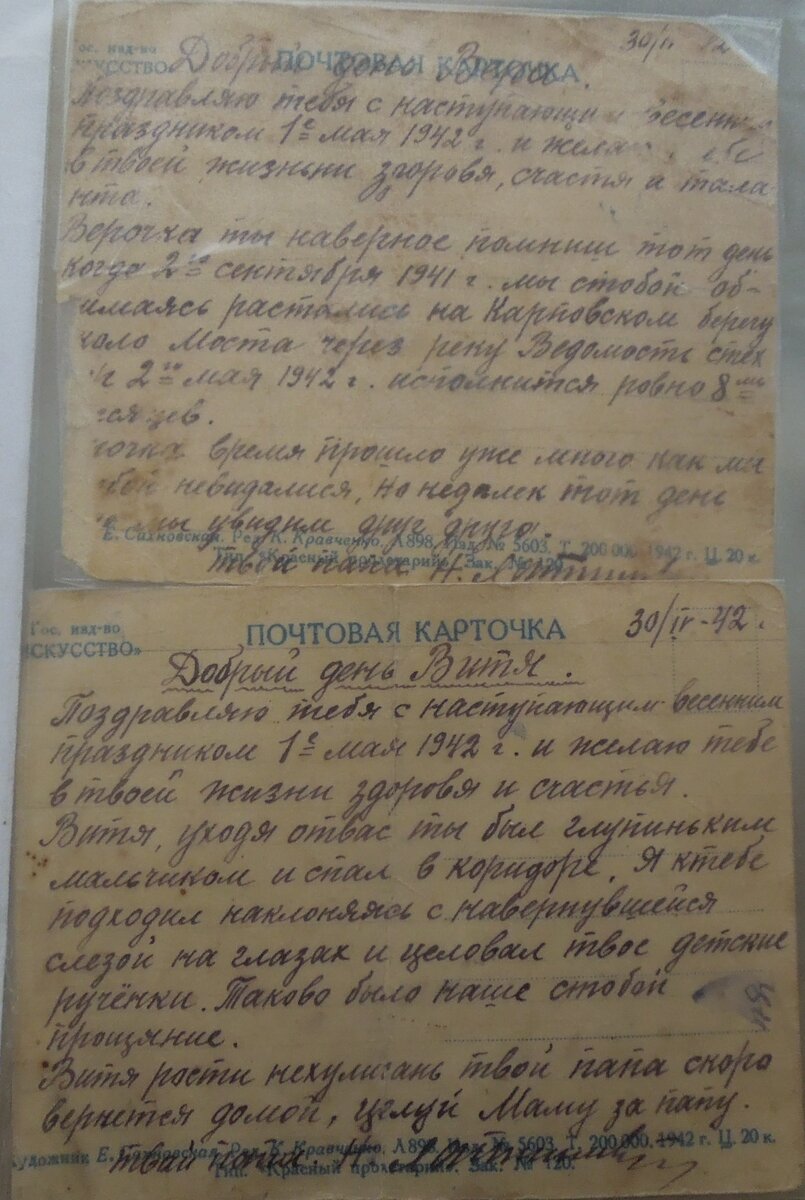 Гос. изд-во
ИСКУССТВО
ПОЧТОВАЯ КАРТОЧКА
30/IV 42
Добрый день Вера.
Поздравляю тебя с наступающи весенн
праздником 1е мая 1942 г. и жела
в твоей жизньни згоровя, счастя и тала
нта.
Верочка ты наверное помниш тот день
когда 2го сентября 1941 г. мы стобой об-
нимаясь растались на Карповском берегу
коло Моста через реку Ведомость стех
2го мая 1942 г. исполнится ровно 8мь
сяцев.
очка время прошло уже много как мы
бой невидалися, но недалек тот день
мы увидим друг друга.
Е. Сахновская. Ред. К. Кравченко, Л898. Изд. № 5603. Т. 200 000. 1942 г. Ц. 20 к.
Тип. «Красный пролетарий». Зак. № 120.
твой папа Н.
Гос. изд-во
ИСКУССТВО»
ПОЧТОВАЯ КАРТОЧКА
30/IV-42.
Добрый день Витя.
Поздравляю тебя с наступающим весенним
праздником 1е мая 1942 г. и желаю тебе
в твоей жизни здоровя и счастья.
Витя, уходя отвас ты был глупиньким
мальчиком и спал в коридоре. Я ктебе
подходил наклоняясь с навернувшейся
слезой на глазах и целовал твое детские
ручёнки. Таково было наше стобой
прощяние.
Витя рости нехулигань твой папа скоро
вернется домой, целуй Маму за папу.
Художник Е. Сахновская. Ред. К. Кравченко, Л898. Изд. № 5603. Т. 200 000. 1942 г. Ц. 20 к.
Тип. «Красный пролетарий». Зак. № 120.
твой папа. Н.